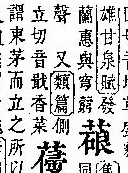 雄甘泉賦發
蘭惠與穹窮
聲又類篇側
立切音戢香菜
謂束茅而立之所以